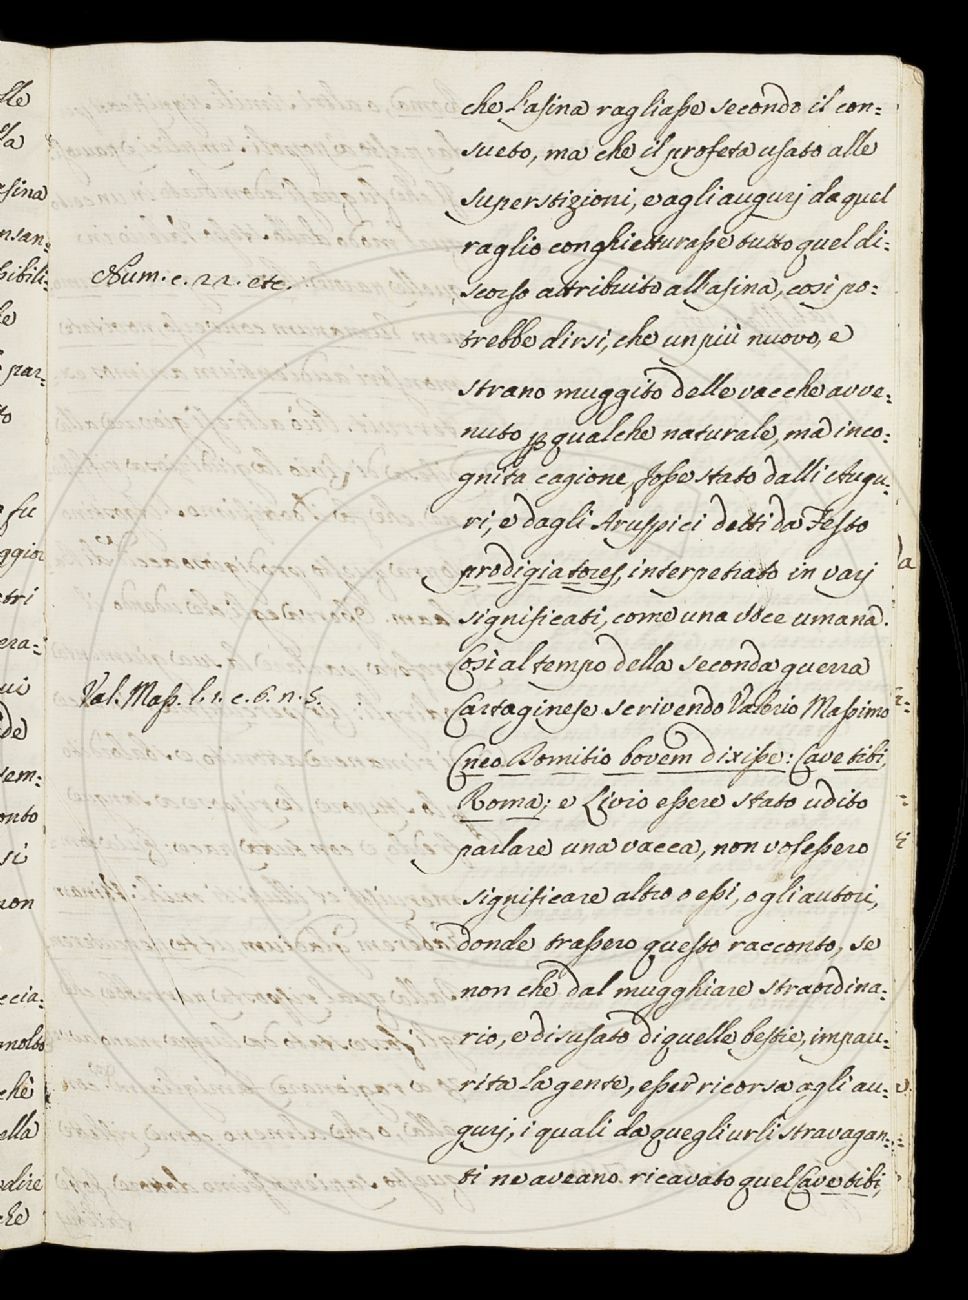 che l'asina ragliasse secondo il con=
sueto, ma che il profeta usato alle
superstizioni, e agli augurj da quel
raglio conghietturasse tutto quel di=
Num. c. 22. etc.
scorso attribuito all'asina, così po=
trebbe dirsi, che un più nuovo, e
strano muggito delle vacche avve=
nuto p qualche naturale, mà inco=
gnita cagione fosse stato dalli Augu=
ri, e dagli Aruspici detti da Festo
prodigiatores, interpetrato in varj
significati, come una voce umana.
Così al tempo della seconda guerra
Val. Mass. l. 1. c. 6. n. 5.
Cartaginese scrivendo Valerio Massimo
Cneo Domitio bovem dixisse: Cave tibi,
Roma; e Livio essere stato udito
parlare una vacca, non volessero
significare altro o essi, o gli autori,
donde trassero questo racconto, se
non chè dal mugghiare straordina=
rio, e disusato di quelle bestie, impau=
rita la gente, esser ricorsa agli au=
gurj, i quali da quegli urli stravagan=
ti ne aveano ricavato quel Cave tibi,